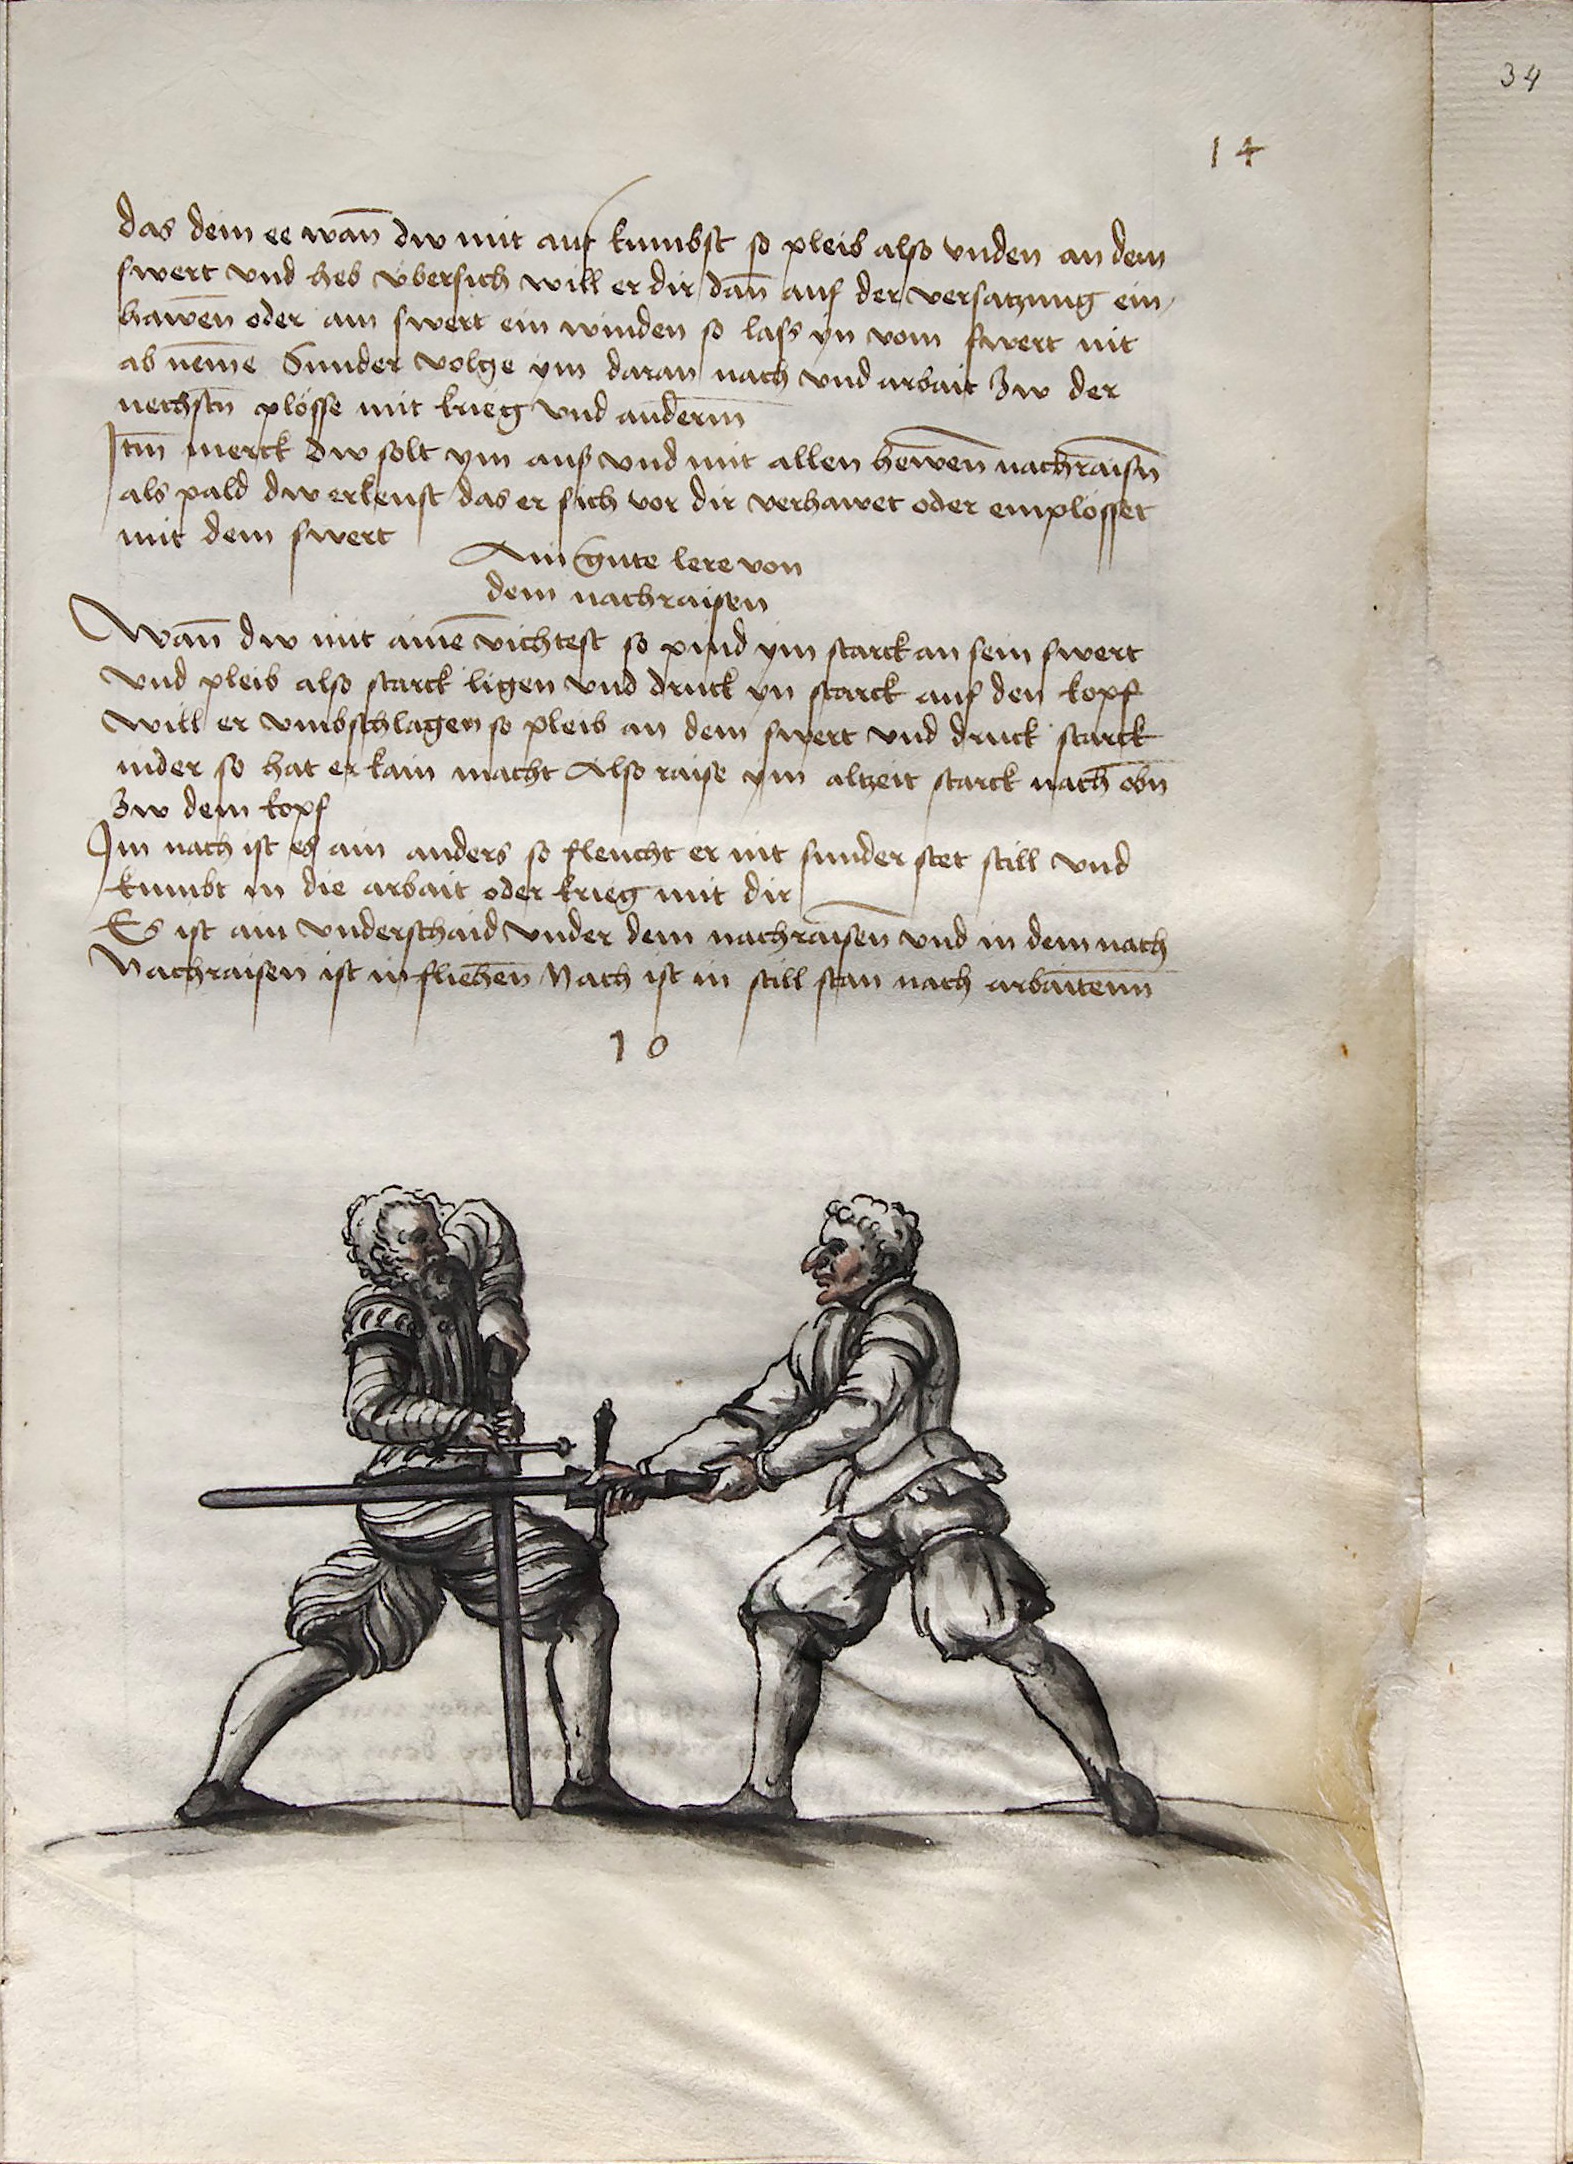 34
14
das dein ee wan̄ dw mit auf kumbst so pleib also vnden an dem
swert vnd heb v̈bersich will er dir dan̄ auß der versatzung ein
hawen̄ oder am swert ein winden so lass yn vom swert nit
ab nem̄e Sunder volge ym daran nach vnd arbait zw der
nechstn̄ plösse mit krieg vnd anderm̄
Itm̄ merck dw solt ym auß vnd mit allen hewen̄ nachraisn̄
als pald dw erkenst das er sich vor dir verhawet oder emplösset
mit dem swert
Ain gute lere von
dem nachraisen
Wan̄ dw mit aine͂ vichtest so pind ym starck an sein swert
vnd pleib also starck ligen vnd druck yn starck auf den kopf
will er vmbschlagen so pleib an dem swert vnd druck starck
nider so hat er kain macht Also raise ym altzeit starck nach obn̄
zw dem kopf
Im nach ist es ain anders so fleucht er nit sunder stet still vnd
kumbt in die arbait oder krieg mit dir
Es ist ain vnderschaid vnder dem nachraisen̄ vnd in dem nach
Nachraisen ist in fliehen̄ Nach ist in still stan nach arbaitenn̄
10